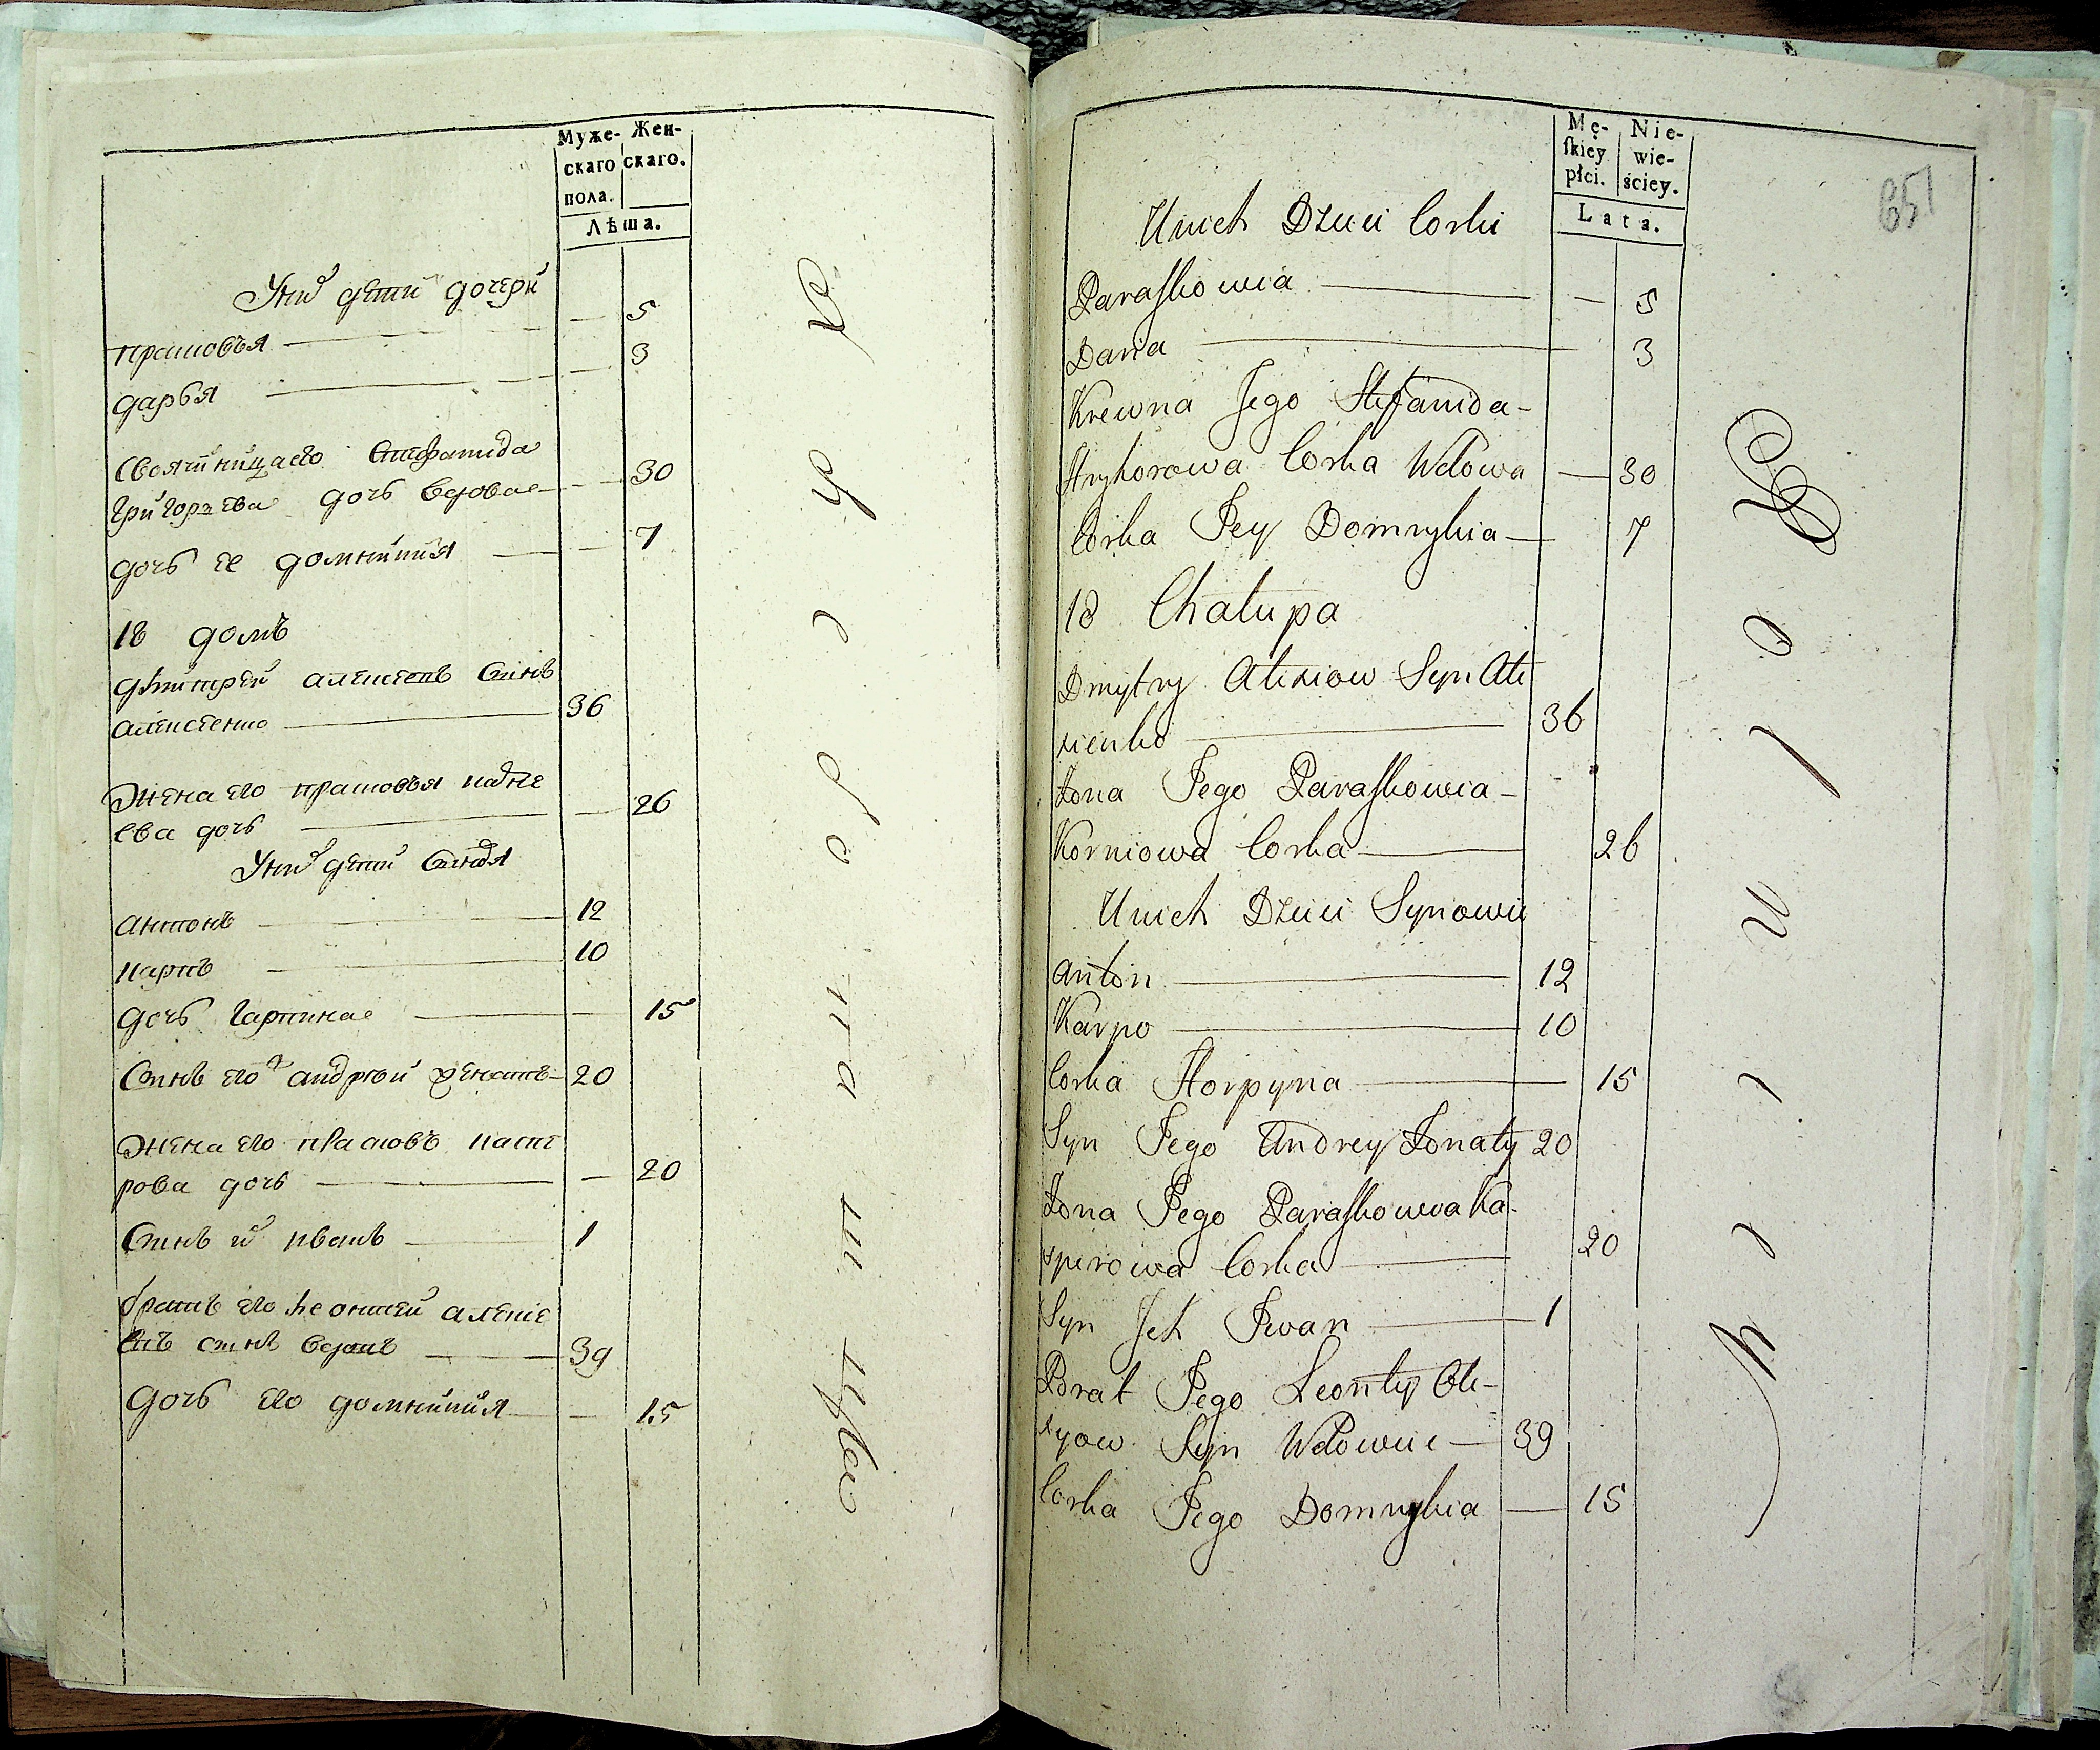 Муже-
скаго
пола.
Жен-
скаго.
Лѣта.
У них дети дочери
прасковья — — 5
дарья — — 3
Свойственница его Стефанида
Григорьева дочь вдова — — 30
дочь ее домникия — — 7
18 домъ
дмитрей алексеевъ сынъ
алексеенко — 36
Жена его прасковья корне
ева дочь — — 26
У них дети сыновья
антонъ — 12
карпъ — 10
дочь гарпина — — 15
Сынъ его андрей женатъ — 20
Жена его прасковъ каспе
рова дочь — — 20
Сынъ их иванъ — 1
братъ его леонтей алексе
евъ сынъ вдовъ — 39
дочь его домникия — — 15
Mę-
ſkiey
płci.
Nie-
wie-
ściey.
Lata.
651
Unich Dzieci Corki
Paraſkowia — — 5
Daria — 3
Krewna Jego Stefanida -
Hryhorowa Corka Wdowa — 30
Corka Jey Domnykia — 7
18 Chalupa
Dmytry Alexiow Syn Ale
xienko — 36
Żona Jego Paraſkowia -
Korniowa Corka — 26
Unich Dzieci Synowie
Anton — 12
Karpo — 10
Corka Horpyna — 15
Syn Jego Andrey Żonaty 20
Żona Jego Paraſkowia Ka-
sperowa Corka — 20
Syn Ich Iwan — 1
Brat Jego Leonty Ole-
xyow Syn Wdowiec — 39
Corka Jego Domnykia — 15